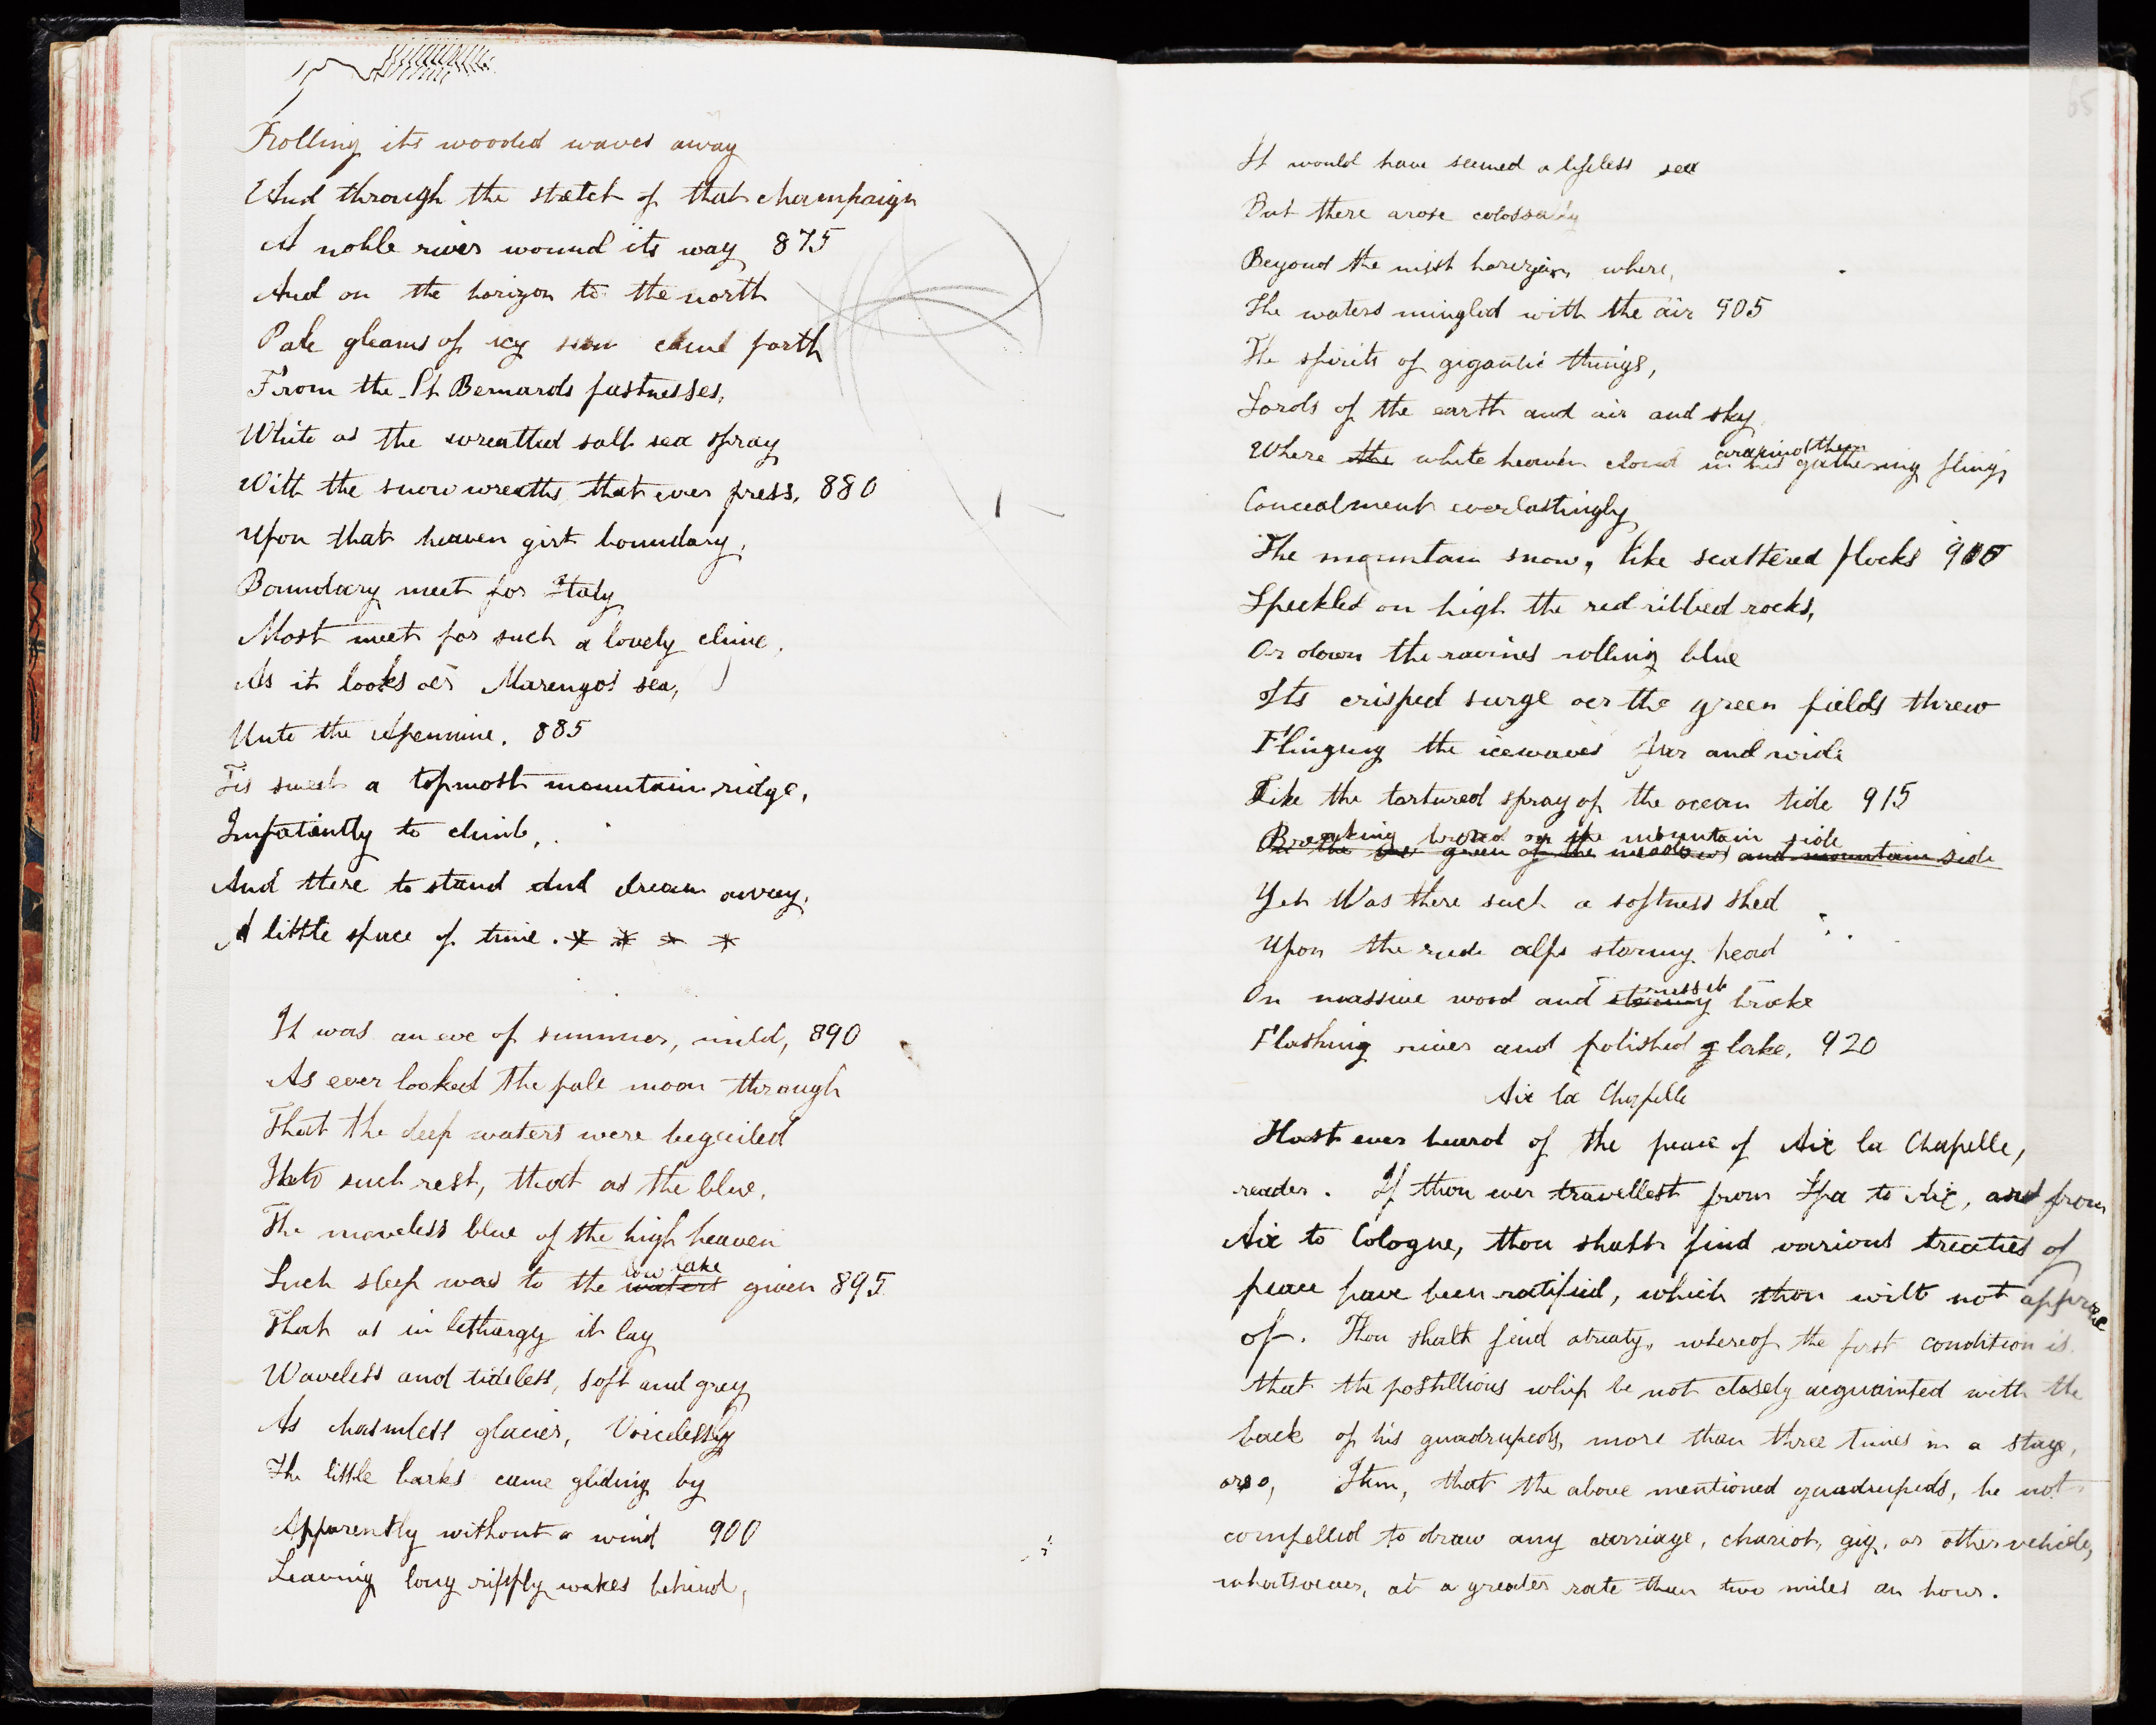 Rolling its wooded waves away
And through the stretch of that champaign
A noble river wound its way 875
And on the horizon to the north
Pale gleams of icy snow came forth
From the St Bernards fastnesses,
White as the wreathed salt sea spray
With the snow wreaths, that ever press, 880
Upon that heaven girt boundary,
Boundary meet for Italy
Most meet for such a lovely clime,
As it looks oer Marengos sea,
Unto the Apennine. 885
Tis sweet a topmost mountain ridge,
Impatiently to climb,
And there to stand and dream away,
A little space of time. * * * *
It was an eve of summer, mild, 890
As ever looked the pale moon through
That the deep waters were beguiled
Into such rest, that as the blue,
The moveless blue of the high heaven
low lake
Such sleep was to the waters given 895
That as in lethargy it lay
Waveless and tideless, soft and grey
As chasmless glacier, Voicelessly
The little barks came gliding by
Apparently without a wind 900
Leaving long ripply wakes behind,
65
It would have seemed a lifeless sea
But there arose colossally
Beyond the misst horizon, where,
The waters mingled with the air 905
The spirits of gigantic things,
Lords of the earth and air and sky
around them
Where the white heaven cloud in his gathering flings
Concealment everlastingly
The mountain snow, like scattered flocks 910
Speckled on high the red ribbed rocks,
Or down the ravines rolling blue
Its crisped surge oer the green fields threw
Flinging the icewaves far and wide
Like the tortured spray of the ocean tide 915
Breaking broad on the mountain side
green of the meadows and mountain side
Yet Was there such a softness shed
Upon the rude alps stormy head
russet
On massive wood and stormy brake
Flashing river and polished lake, 920
Aix la Chapelle
Hast ever heard of the peace of Aix la Chapelle,
reader. If thou ever travellest from Spa to Aix, and from
Aix to Cologne, thou shalt find various treaties of
peace have been ratified, which thou wilt not approve
of. Thou shalt find a treaty, whereof the first condition is
that the postillions whip be not closely acquainted with the
back of his quadrupeds, more than three times in a stage,
or so, Item, that the above mentioned quadrupeds, be not
compelled to draw any carriage, chariot, gig, or other vehicle,
whatsoever, at a greater rate than two miles an hour.